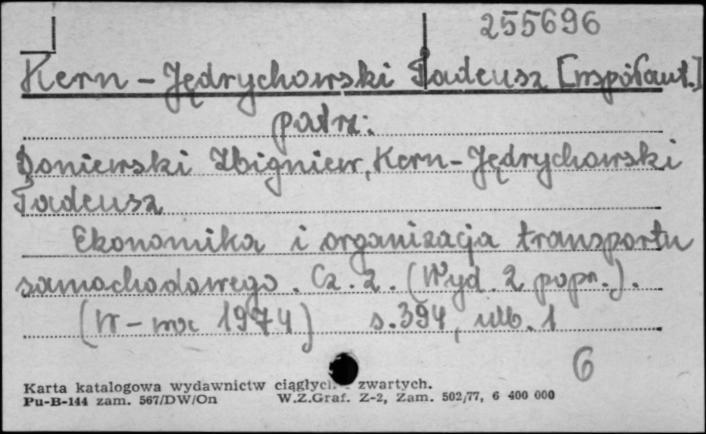 255696
Kern-Jędrychowski Tadeusz [współaut.]
patrz:
Doniewski Zbigniew, Kern-Jędrychowski
Tadeusz
Ekonomika i organizacja transportu
samochodowego. Cz. 2. (Wyd. 2 popr.).
(W-wa 1974) s. 394, nlb. 1
6
Karta katalogowa wydawnictw ciągłych - zwartych.
Pu-B-144 zam. 567/DW/On W.Z.Graf. Z-2, Zam. 502/77, 6 400 000